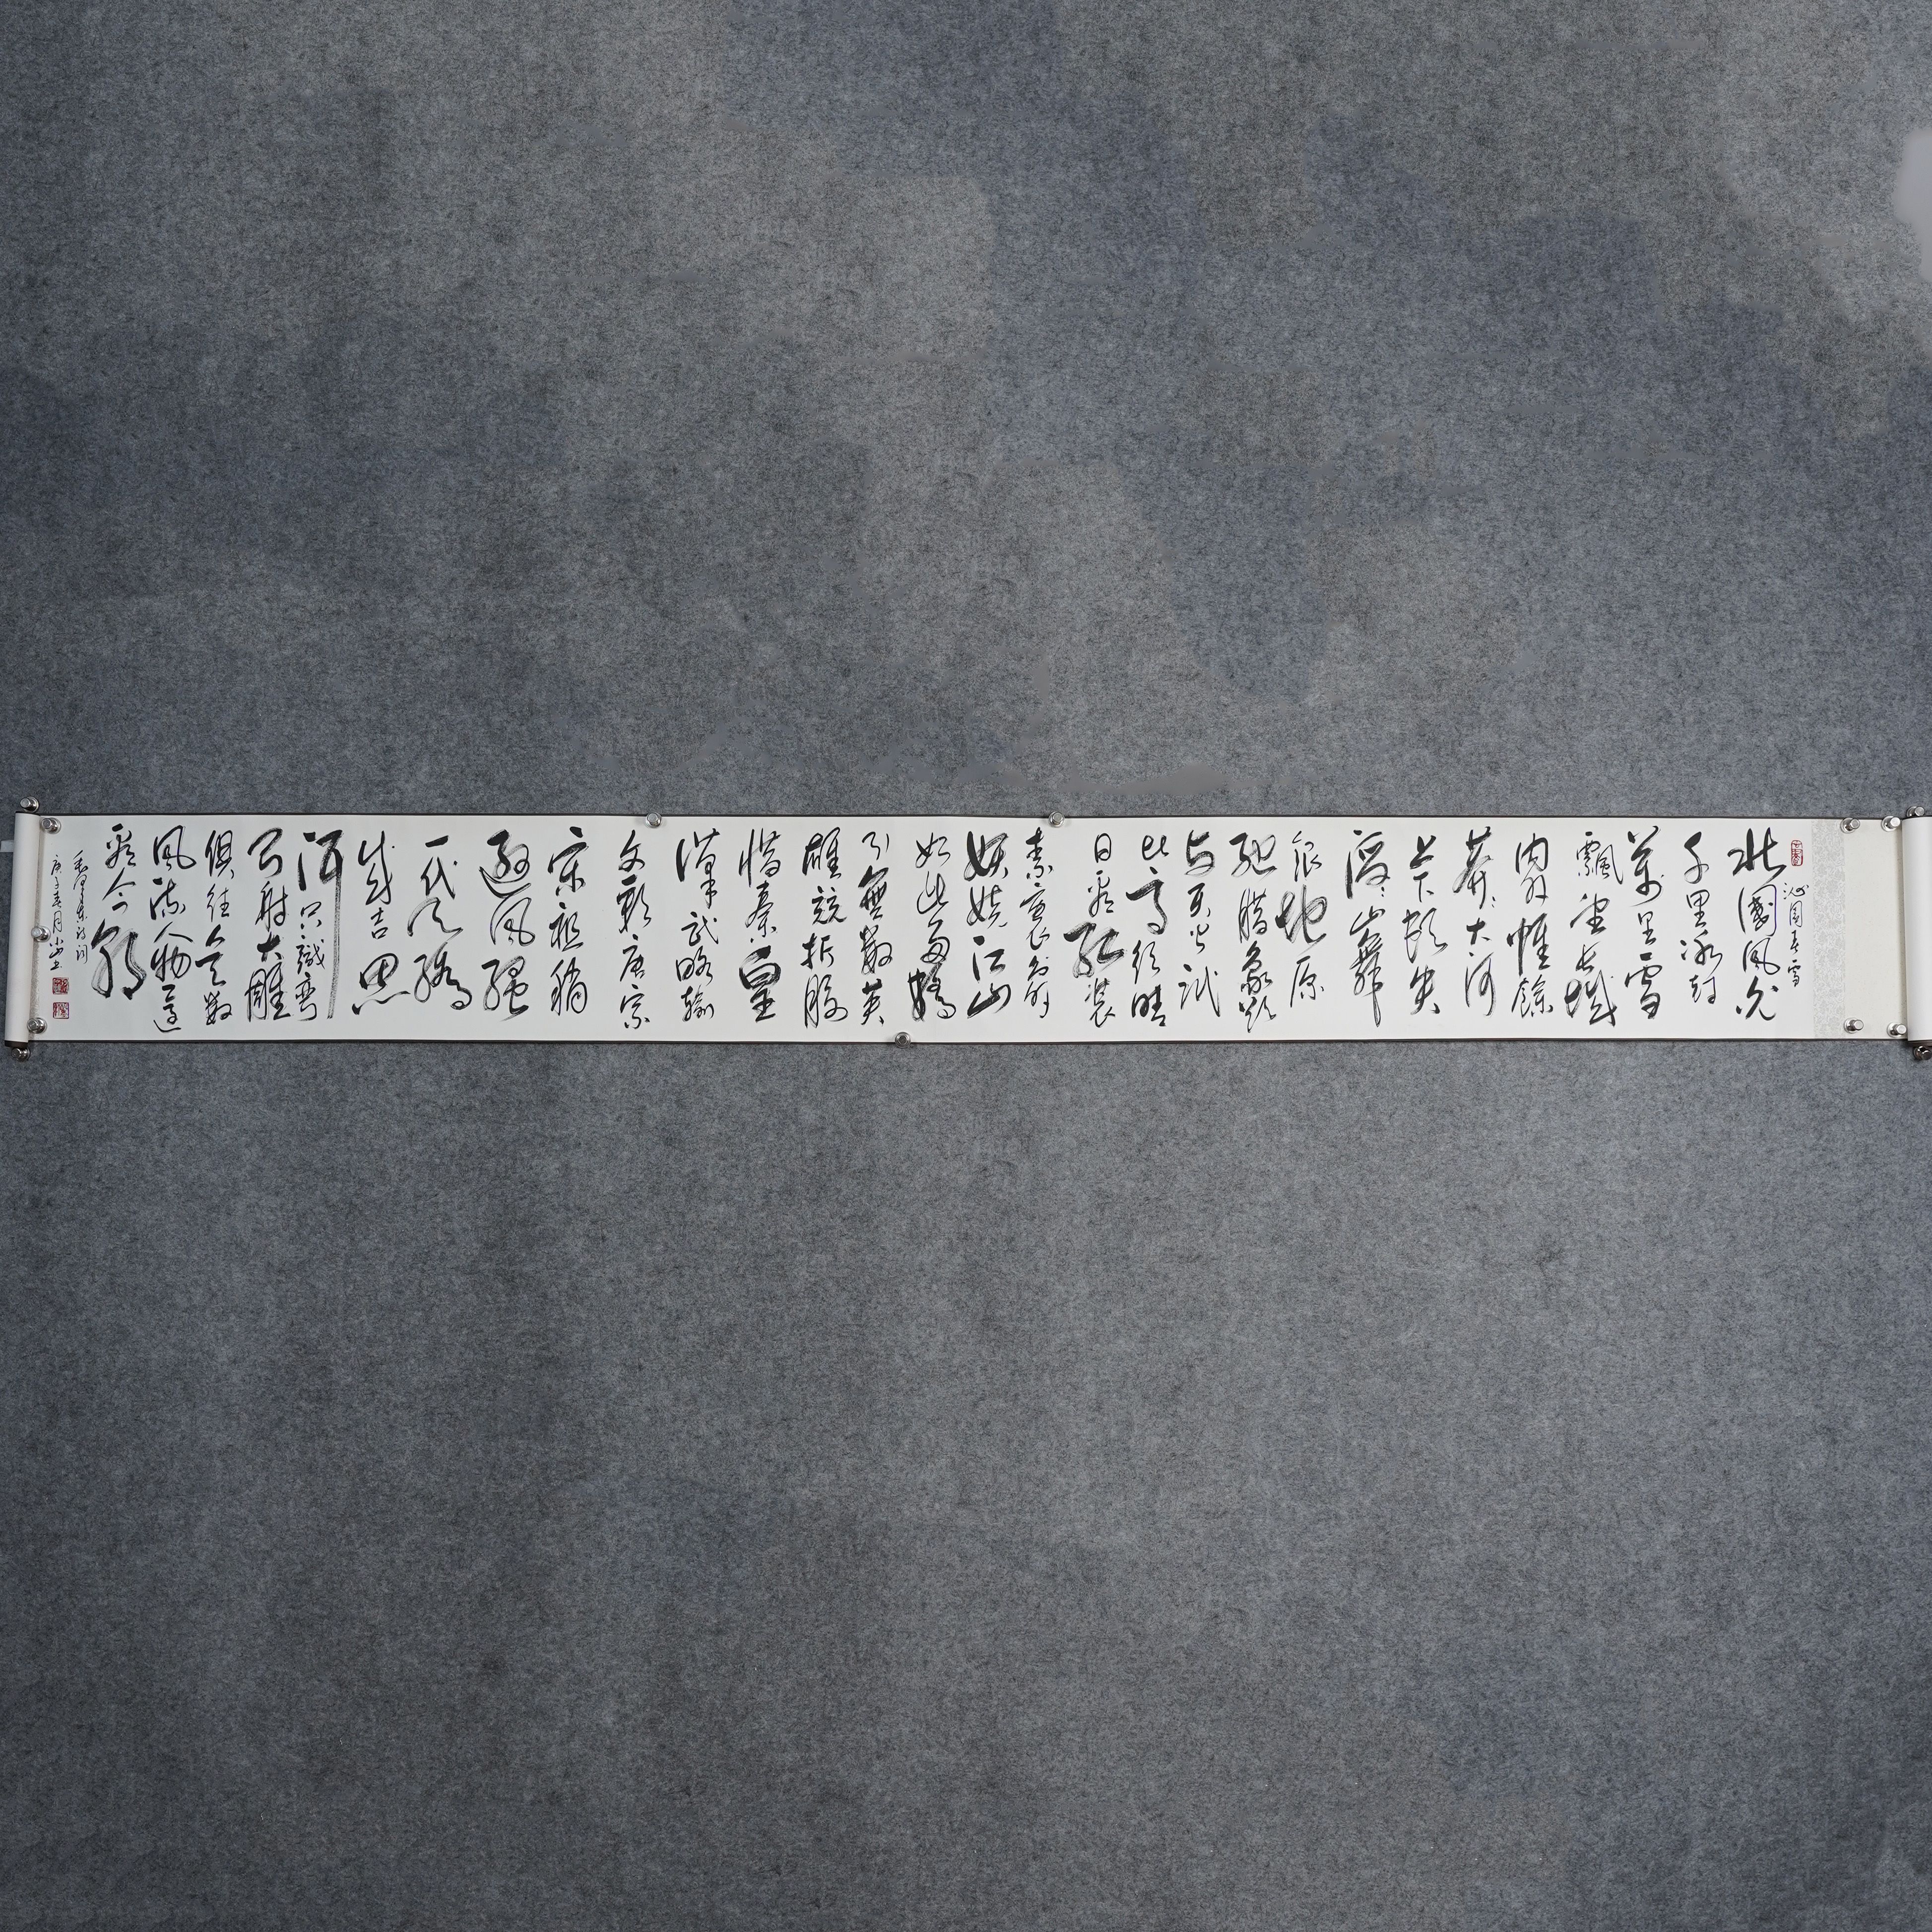 沁園春雪
北國風光
千里冰封
萬里雪
飄望長城
內外惟餘
莽莽大河
上下頓失
滔滔山舞
銀蛇原
馳蠟象欲
與天公試
比高須晴
日看紅裝
素裹分外
妖嬈江山
如此多嬌
引無數英
雄競折腰
惜秦皇
漢武略輸
文彩唐宗
宋祖稍
遜風騷
一代天驕
成吉思
汗只識彎
弓射大雕
俱往矣數
風流人物還
看今朝
毛澤東詩詞
庚子月